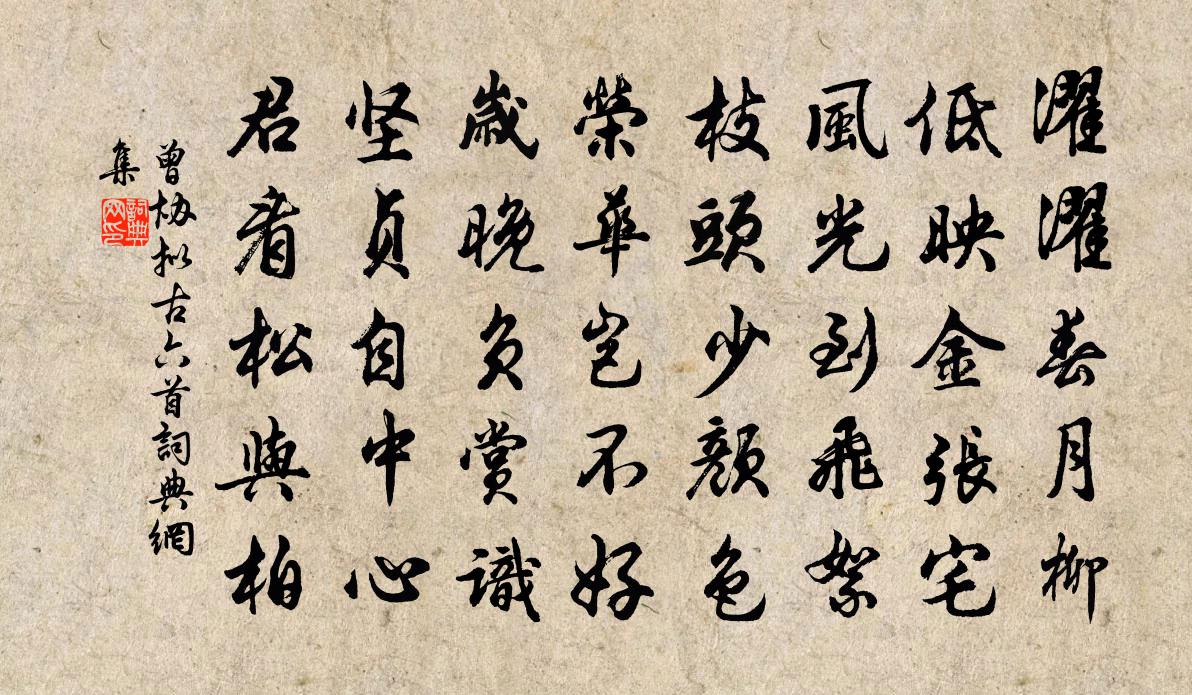 濯濯春月柳
低映金張宅
風光到飛絮
枝頭少顔色
榮華岂不好
歳晚負賞識
坚貞自中心
君看松與柏
曾協拟古六首詞典網
集
詞典
网印